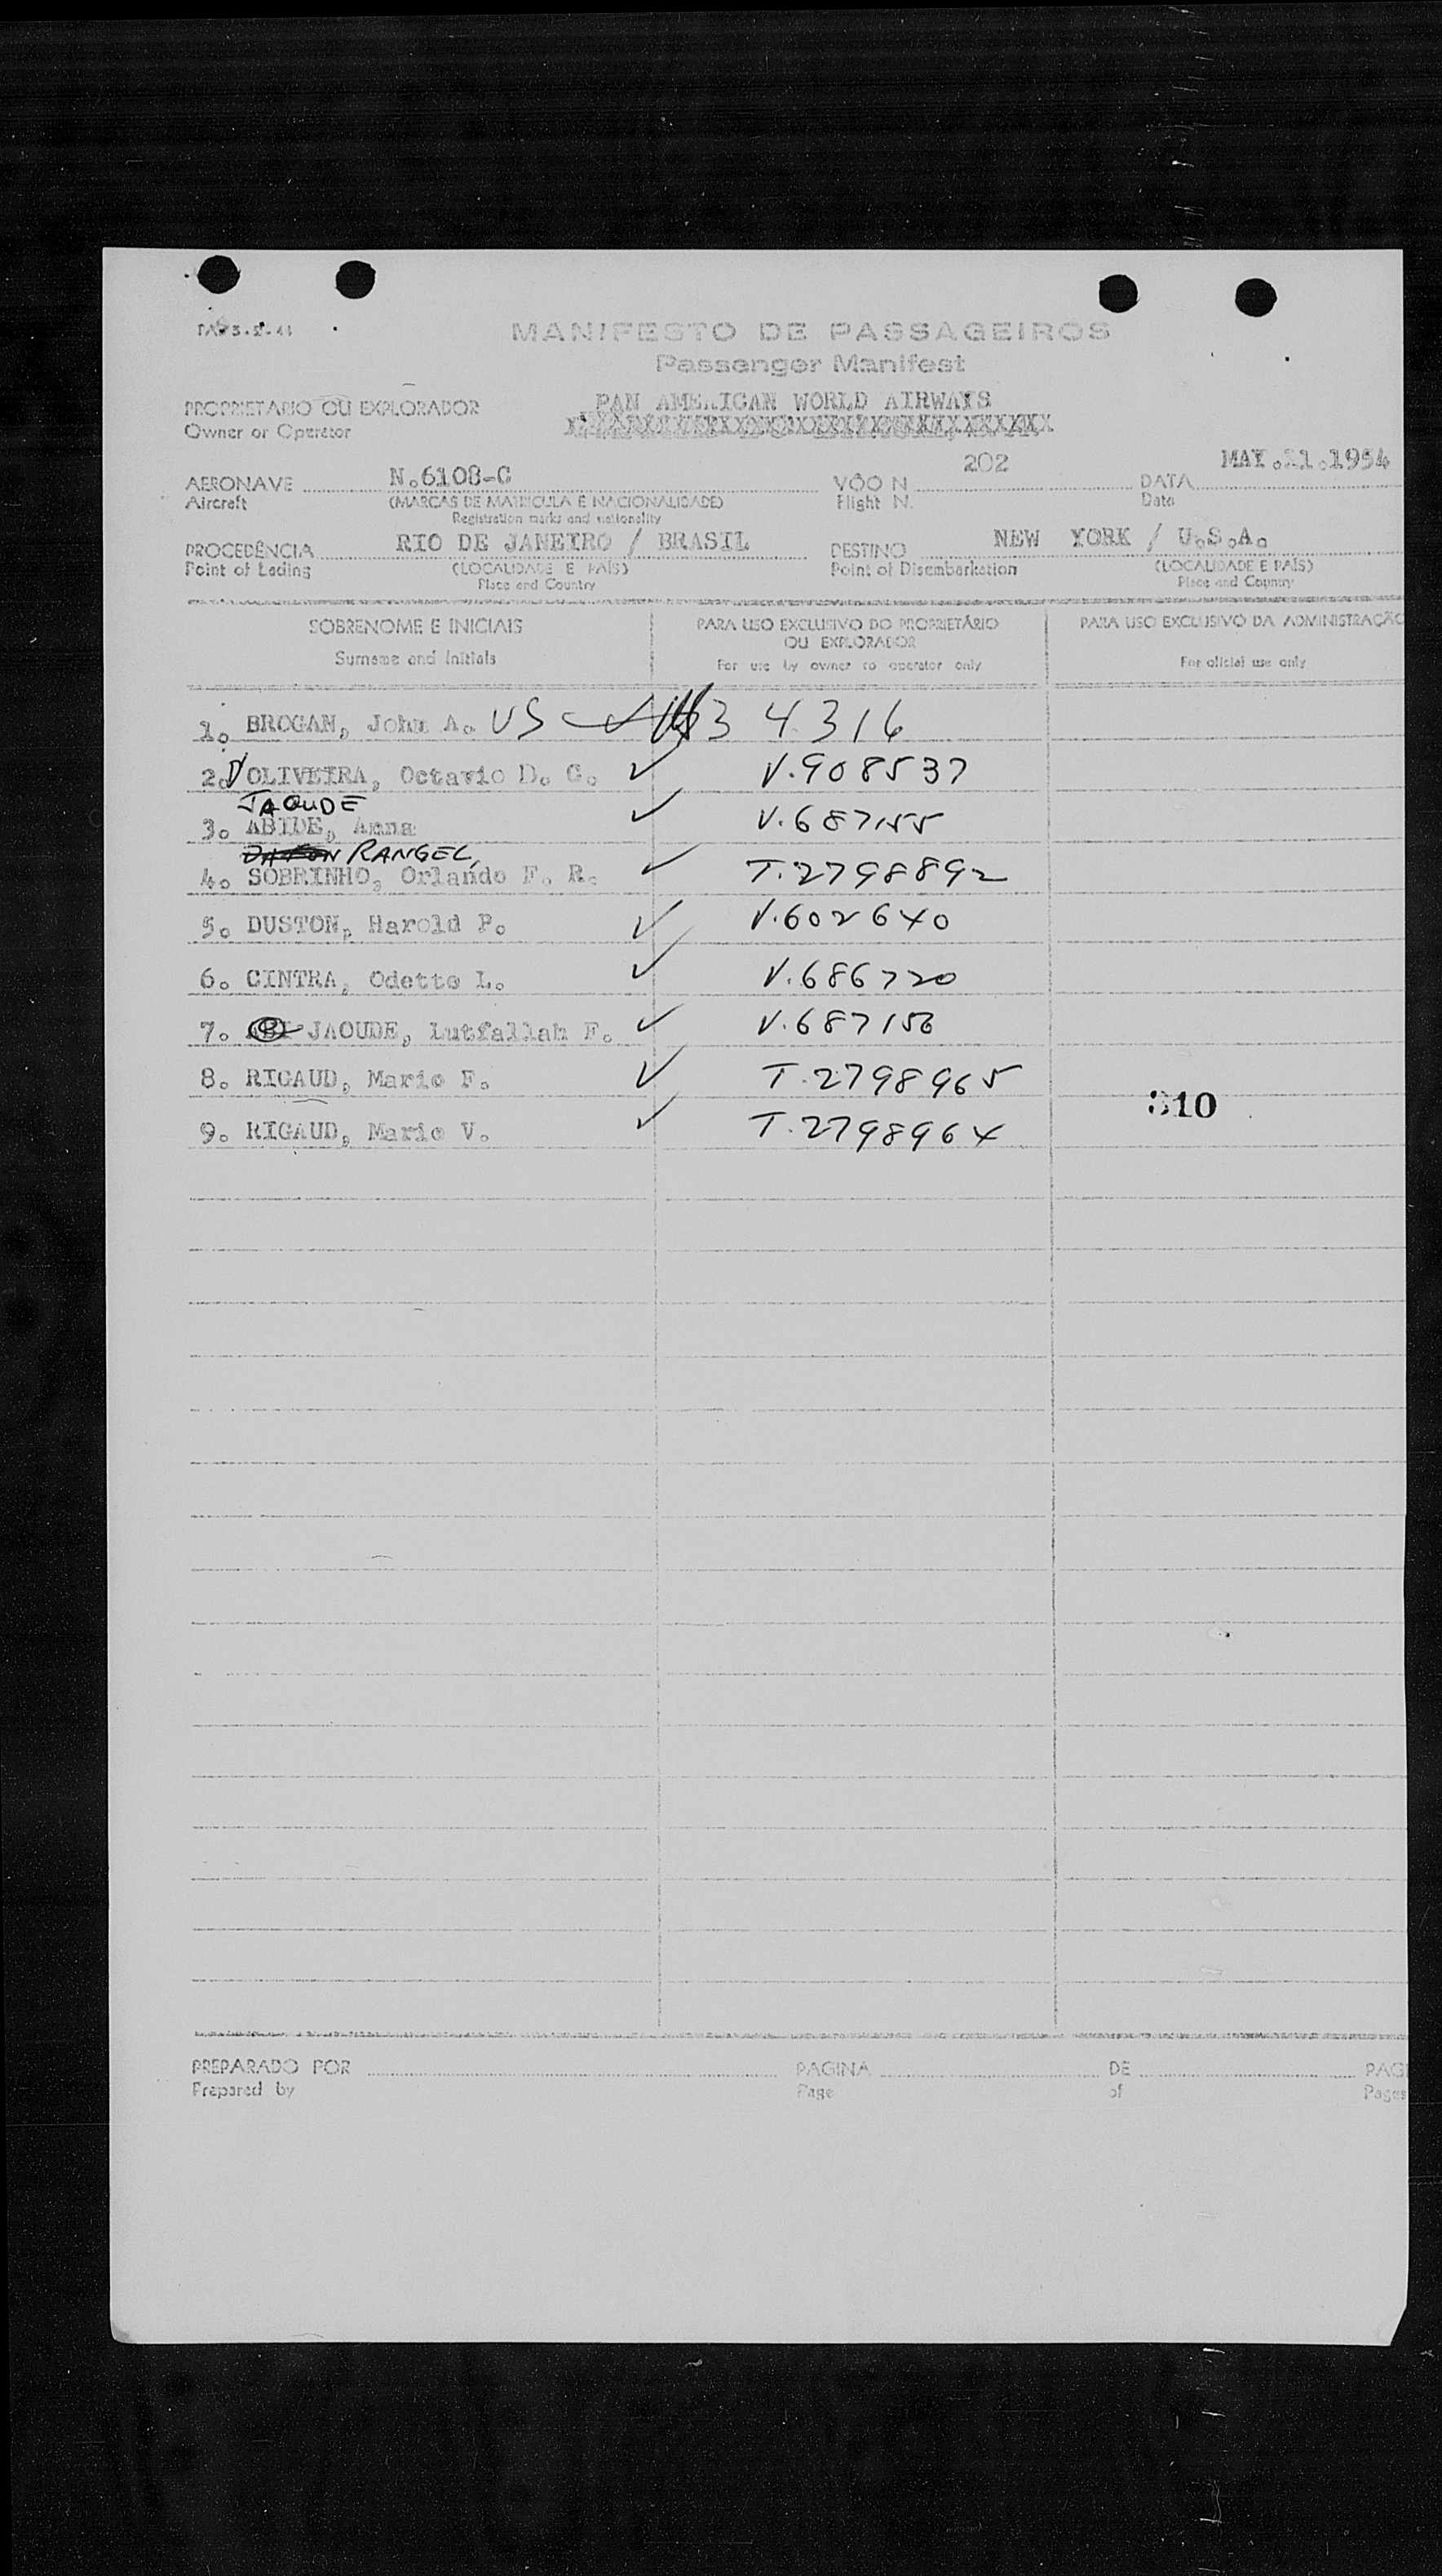 MANIFESTO DE PASSAGEIROS
Passenger Manifest
PROPRIETARIO OU EXPLORADOR PAN AMERICAN WORLD AIRWAYS
Owner or Operator
AERONAVE N.6108-C VÔO N 202 DATA MAY.11.1954
Aircraft (MARCAS DE MATRICULA E NACIONALIDADE) Flight N. Date
Registration marks and nationality
PROCEDÊNCIA RIO DE JANEIRO / BRASIL DESTINO NEW YORK / U.S.A.
Point of Lading (LOCALIDADE E PAÍS) Point of Disembarkation (LOCALIDADE E PAÍS)
Place and Country Place and Country
SOBRENOME E INICIAIS PARA USO EXCLUSIVO DO PROPRIETÁRIO PARA USO EXCLUSIVO DA ADMINISTRAÇÃO
OU EXPLORADOR
Surname and Initials For use by owner or operator only For oficial use only
1. BROGAN, John A. US 3 4316
2. D'OLIVEIRA, Octavio D. G. ✓ V.908537
JAOUDE
3. ABIDE, Anna ✓ V.687155
RANGEL,
4. SOBRINHO, Orlando F. R. ✓ T.2798892
5. DUSTON, Harold P. ✓ V.602640
6. CINTRA, Odette L. ✓ V.686720
7. ABI JAOUDE, Lutfallah F. ✓ V.687156
8. RIGAUD, Marie F. ✓ T.2798965
310
9. RIGAUD, Mario V. ✓ T.2798964
PREPARADO POR PAGINA DE PAG
Prepared by Page of Pages